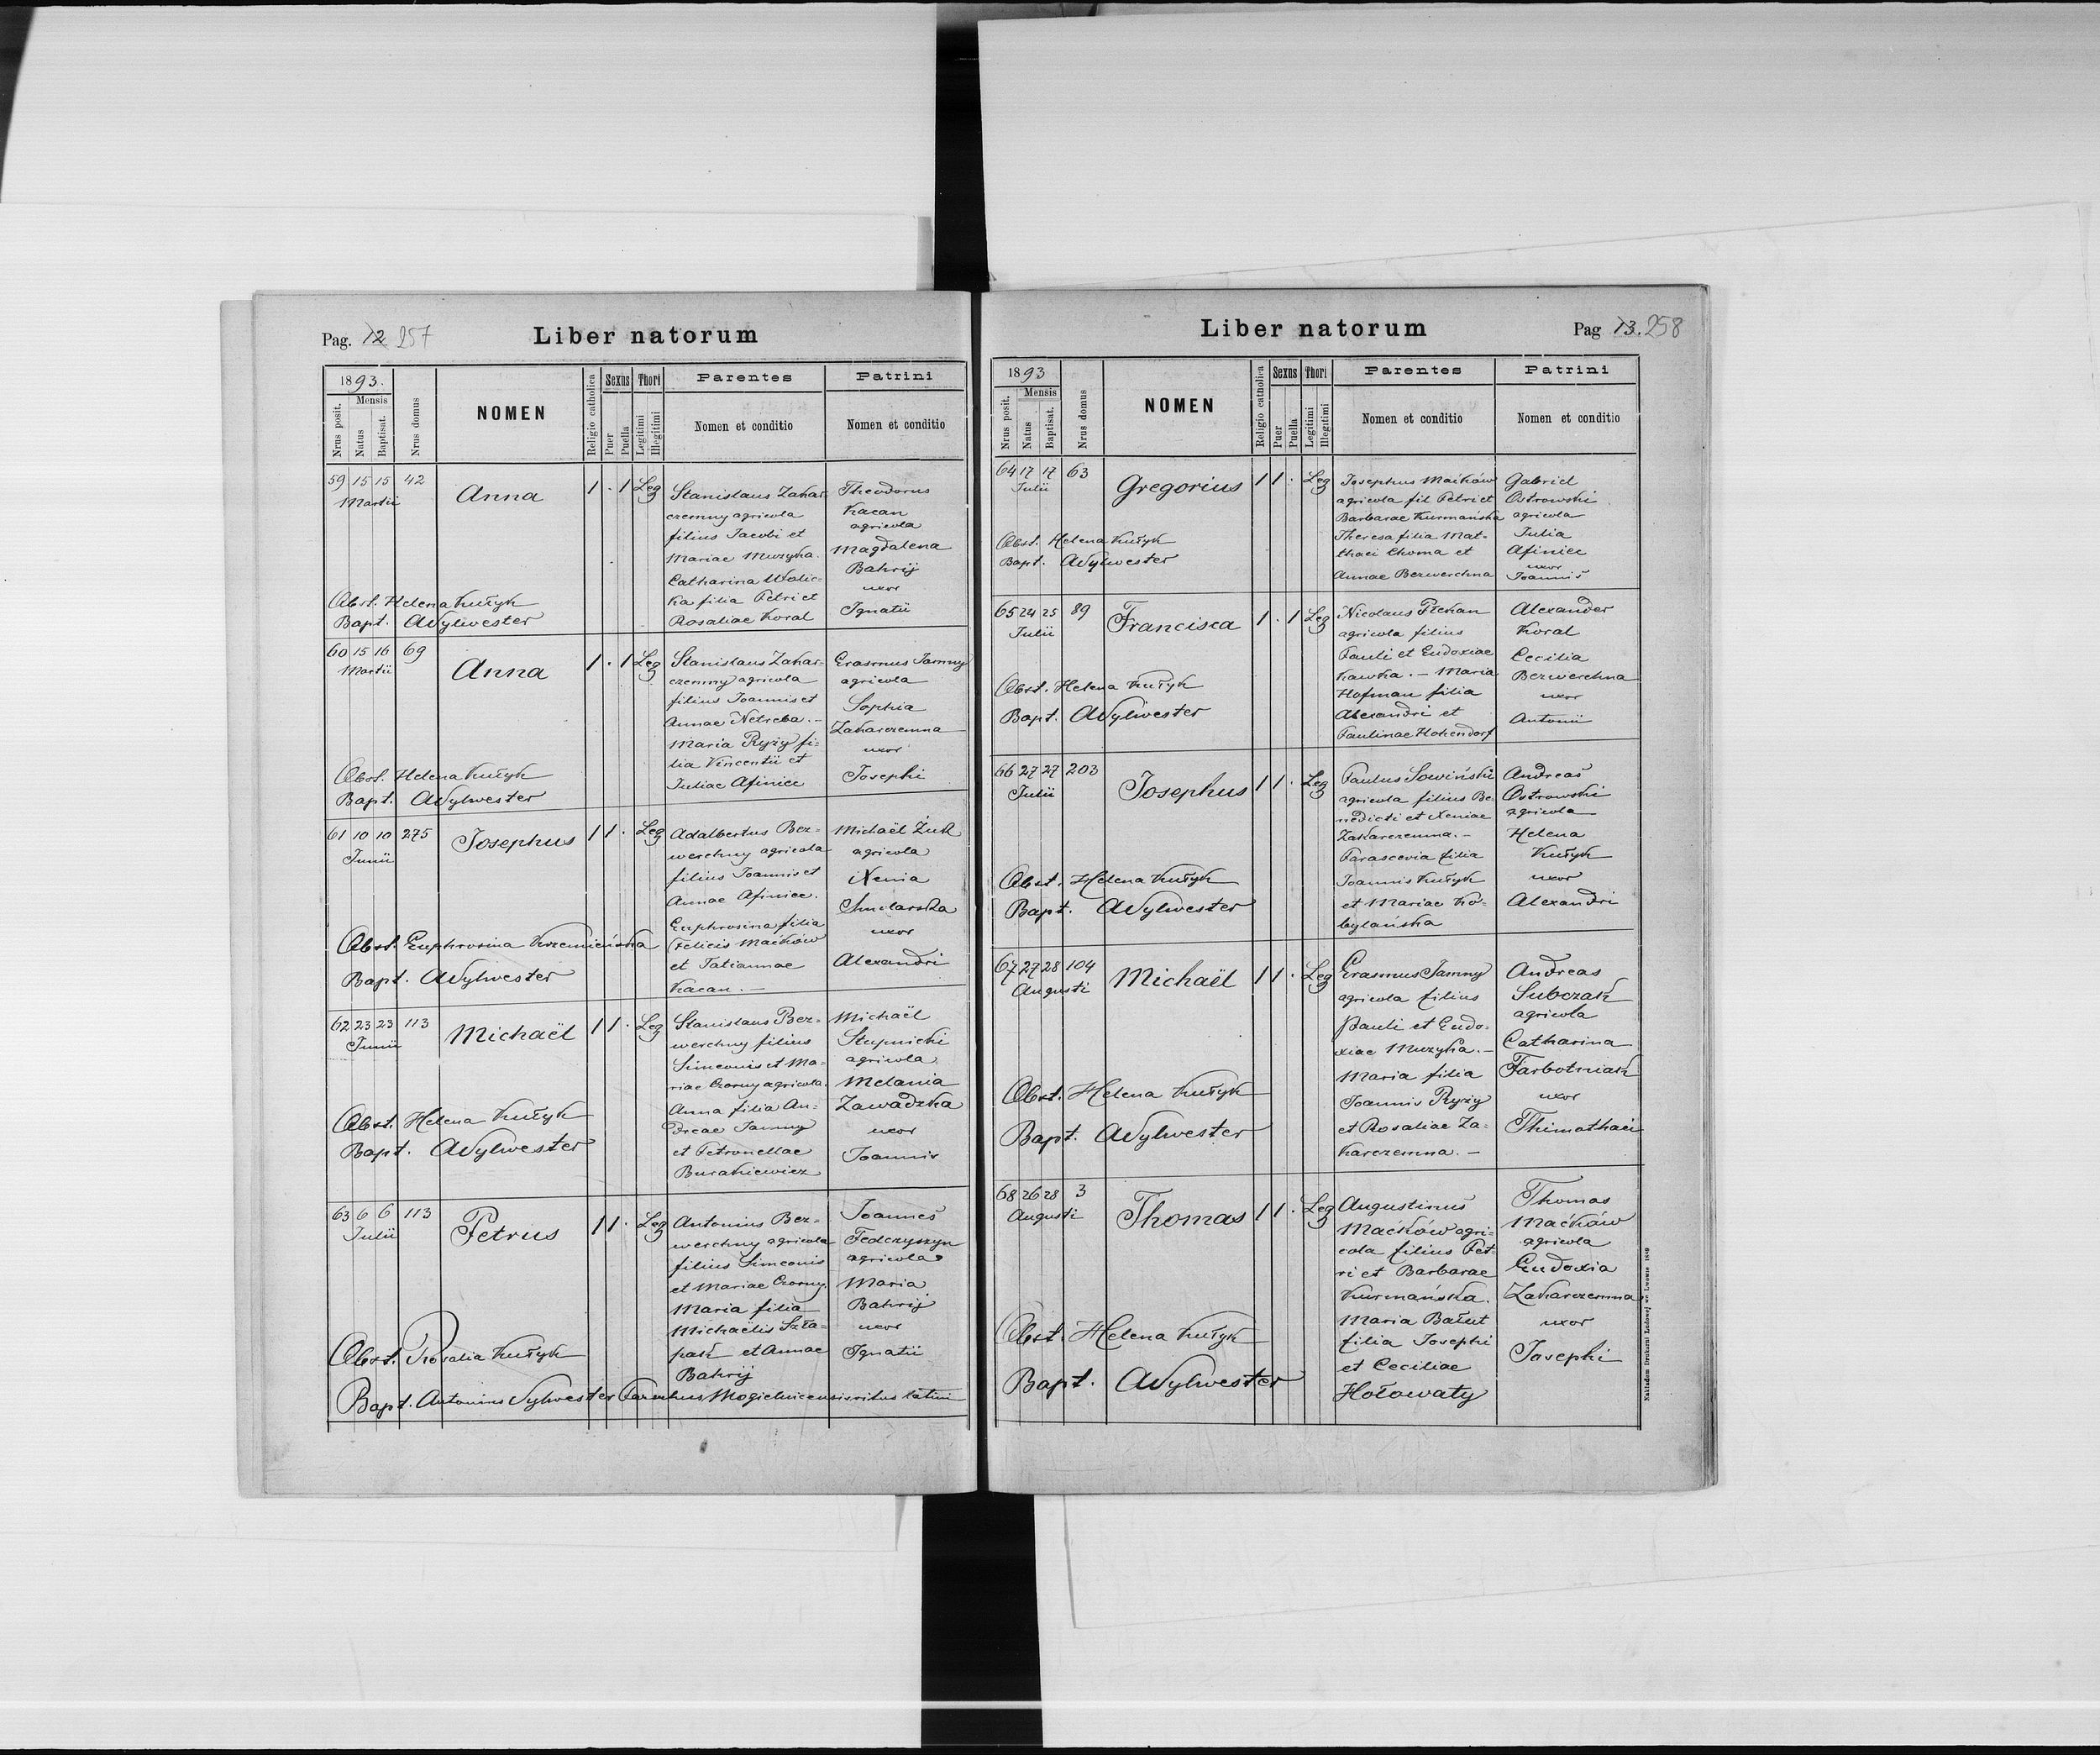 Pag. 12 257
Liber natorum
1893.
Nrus posit.
Mensis
Natus
Baptisat.
Nrus domus
NOMEN
Religio catholica
Sexus
Puer
Puella
Thori
Legitimi
Illegitimi
Parentes
Nomen et conditio
Patrini
Nomen et conditio
59 15 15 42
Martii
Anna
1 . 1 Leg
Stanislaus Zahar-
czemny agricola
filius Jacobi et
Mariae Muzyka.
Catharina Wolic-
ka filia Petri et
Rosaliae Koral
Theodorus
Kacan
agricola
Magdalena
Bahrij
uxor
Ignatii
Obst. Helena Kułyk
Bapt. ASylwester
60 15 16 69
Martii
Anna
1 . 1 Leg
Stanislaus Zahar-
czemny agricola
filius Joannis et
Annae Netreba.-
Maria Ryży fi-
lia Vincentii et
Juliae Afiniec
Erasmus Jamny
agricola
Sophia
Zaharczemna
uxor
Josephi
Obst. Helena Kułyk
Bapt. ASylwester
61 10 10 275
Junii
Josephus
1 1 . Leg
Adalbertus Bez-
werchny agricola
filius Joannis et
Annae Afiniec.
Euphrosina filia
Felicis Maćków
et Tatiannae
Kacan.-
Michaël Żuk
agricola
Xenia
Smolarska
uxor
Alexandri
Obst. Euphrosina Krzemieńska
Bapt. ASylwester
62 23 23 113
Junii
Michaël
1 1 . Leg
Stanislaus Bez-
werchny filius
Simeonis et Ma-
riae Czorny agricola.
Anna filia An-
dreae Jamny
et Petronellae
Burakiewicz
Michaël
Stupnicki
agricola
Melania
Zawadzka
uxor
Joannis
Obst. Helena Kułyk
Bapt. ASylwester
63 6 6 113
Julii
Petrus
1 1 . Leg
Antonius Bez-
werchny agricola
filius Simeonis
et Mariae Czorny.
Maria filia
Michaëlis Szła-
pak et Annae
Bahrij
Joannes
Fedczyszyn
agricola
Maria
Bahrij
uxor
Ignatii
Obst. Rosalia Kułyk
Bapt. Antonius Sylwester Parochus Mogielnicensis ritus latini
Liber natorum
Pag 13. 258
1893
Nrus posit.
Mensis
Natus
Baptisat.
Nrus domus
NOMEN
Religio catholica
Sexus
Puer
Puella
Thori
Legitimi
Illegitimi
Parentes
Nomen et conditio
Patrini
Nomen et conditio
64 17 17 63
Julii
Gregorius
1 1 . Leg
Josephus Maćków
agricola fil Petri et
Barbarae Kurmańska
Theresa filia Mat-
thaei Choma et
Annae Bezwerchna
Gabriel
Ostrowski
agricola
Julia
Afiniec
uxor
Joannis
Obst. Helena Kułyk
Bapt. ASylwester
65 24 25 89
Julii
Francisca
1 . 1 Leg
Nicolaus
agricola filius
Pauli et Eudoxiae
Kawka.- Maria
Hofman filia
Alexandri et
Paulinae Hohendorf
Alexander
Koral
Cecilia
Bezwerchna
uxor
Antonii
Obst. Helena Kułyk
Bapt. ASylwester
66 27 27 203
Julii
Josephus
1 1 . Leg
Paulus Sowiński
agricola filius Be-
nedicti et Xeniae
Zaharczemna.-
Parascevia filia
Joannis Kułyk
et Mariae Ko-
bylańska
Andreas
Ostrowski
agricola
Helena
Kułyk
uxor
Alexandri
Obst. Helena Kułyk
Bapt. ASylwester
67 27 28 104
Augusti
Michaël
1 1 . Leg
Erasmus Jamny
agricola filius
Pauli et Eudo-
xiae Muzyka.-
Maria filia
Joannis Ryży
et Rosaliae Za-
harczemna.-
Andreas
Subczak
agricola
Catharina
Farbotniak
uxor
Thimathaei
Obst. Helena Kułyk
Bapt. ASylwester
68 26 28 3
Augusti
Thomas
1 1 . Leg
Augustinus
Maćków agri-
cola filius Pet-
ri et Barbarae
Kurmańska.
Maria Bałut
filia Josephi
et Ceciliae
Hołowaty
Thomas
Maćków
agricola
Eudoxia
Zaharczemna
uxor
Josephi
Obst. Helena Kułyk
Bapt. ASylwester
Nakładem Drukarni Ludowej we Lwowie 1889